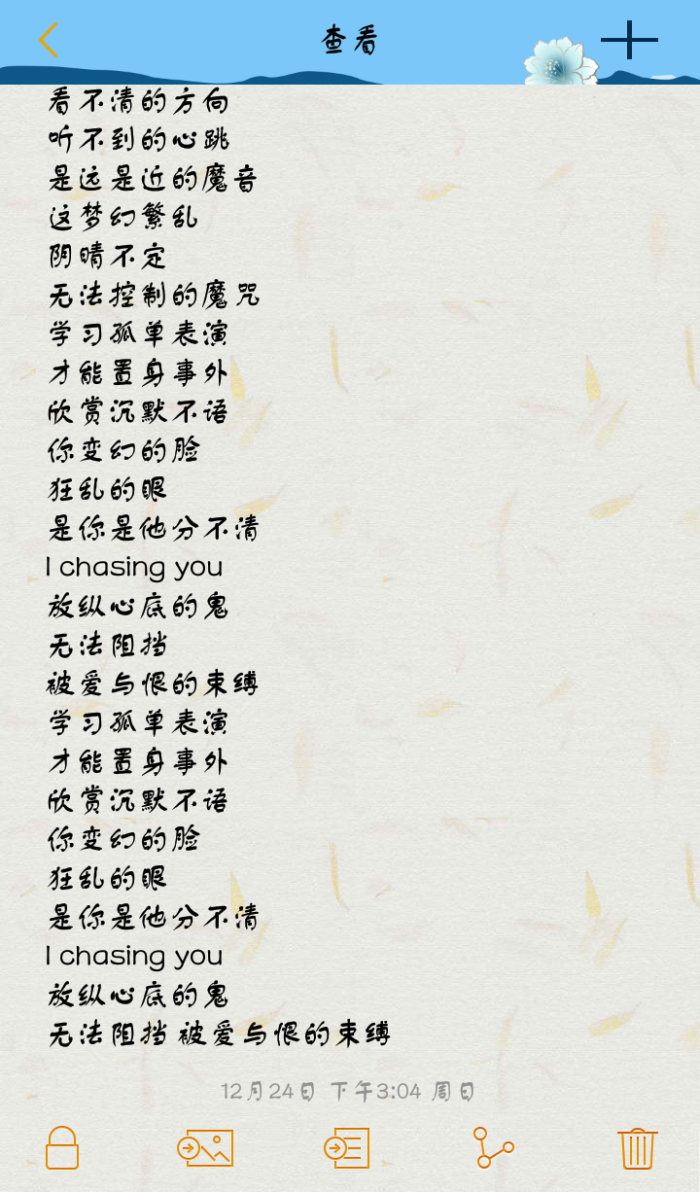 查看
看不清的方向
听不到的心跳
是远是近的魔音
这梦幻繁乱
阴晴不定
无法控制的魔咒
学习孤单表演
才能置身事外
欣赏沉默不语
你变幻的脸
狂乱的眼
是你是他分不清
I chasing you
放纵心底的鬼
无法阻挡
被爱与恨的束缚
学习孤单表演
才能置身事外
欣赏沉默不语
你变幻的脸
狂乱的眼
是你是他分不清
I chasing you
放纵心底的鬼
无法阻挡 被爱与恨的束缚
12月24日 下午3:04 周日